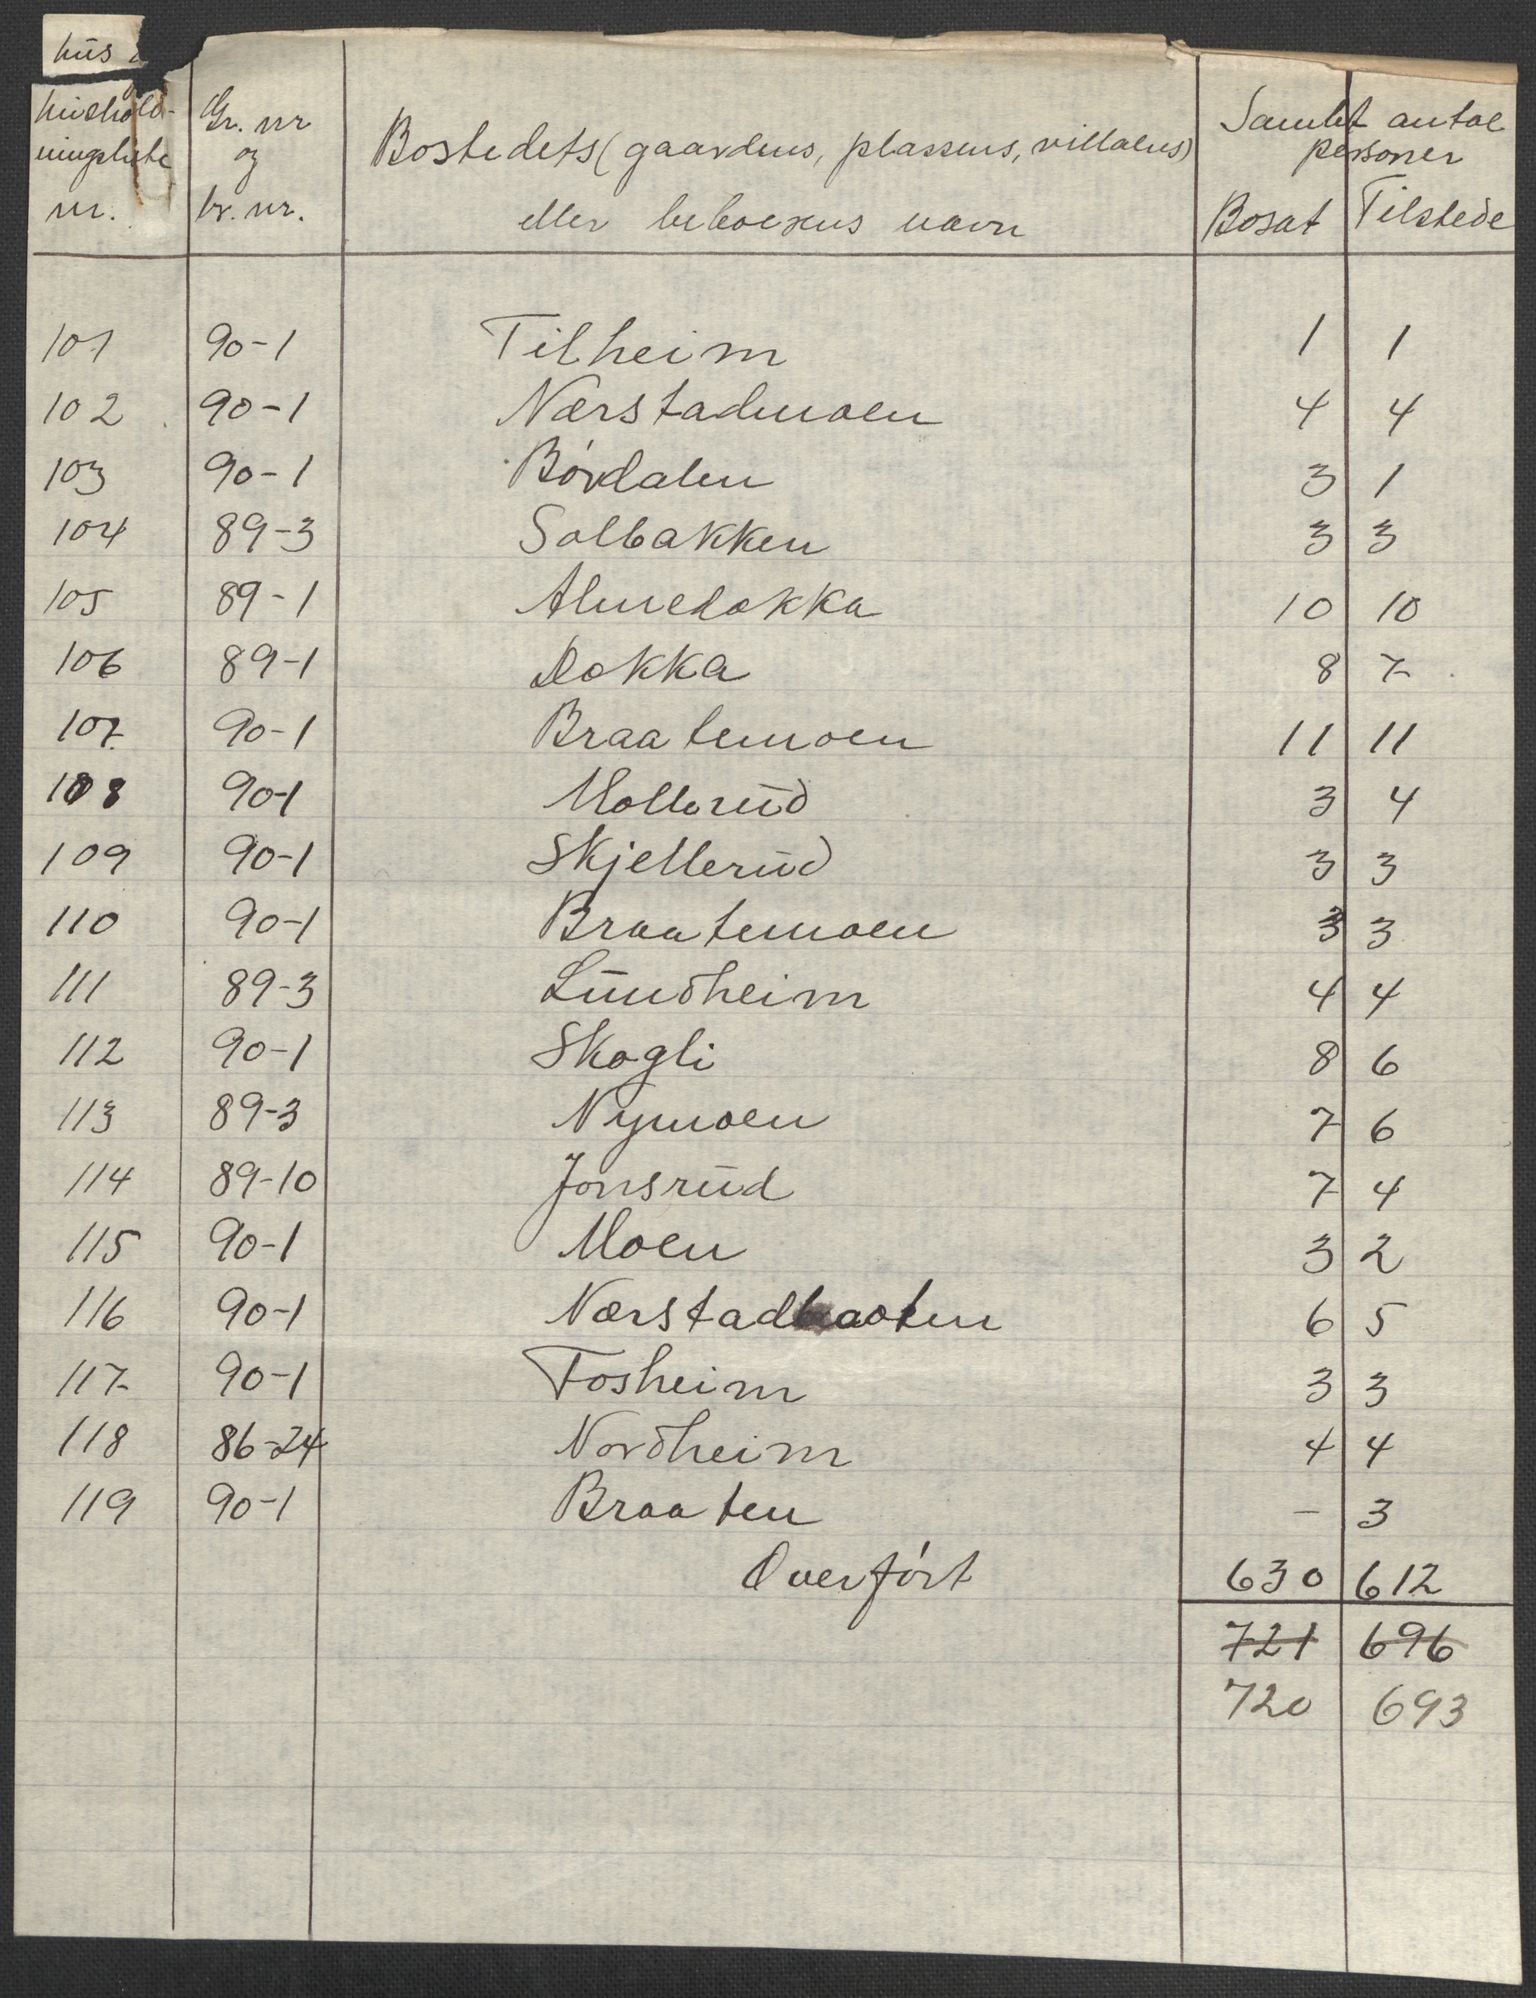 hus
hushold- Gr. nr Samlet antal
ningsliste og Bostedets (gaardens, plassens, villaens) personer
nr. br. nr. eller beboerens navn Bosat Tilstede
101 90-1 Tilheim 1 1
102 90-1 Nærstadmoen 4 4
103 90-1 Børdalen 3 1
104 89-3 Solbakken 3 3
105 89-1 Almedokka 10 10
106 89-1 Dokka 8 7
107 90-1 Braatemoen 11 11
108 90-1 Mollerud 3 4
109 90-1 Skjellerud 3 3
110 90-1 Braatemoen 3 3
111 89-3 Lundheim 4 4
112 90-1 Skogli 8 6
113 89-3 Nymoen 7 6
114 89-10 Jonsrud 7 4
115 90-1 Moen 3 2
116 90-1 Nærstadbraaten 6 5
117 90-1 Fosheim 3 3
118 86-24 Nordheim 4 4
119 90-1 Braaten - 3
Overført 630 612
721 696
720 693